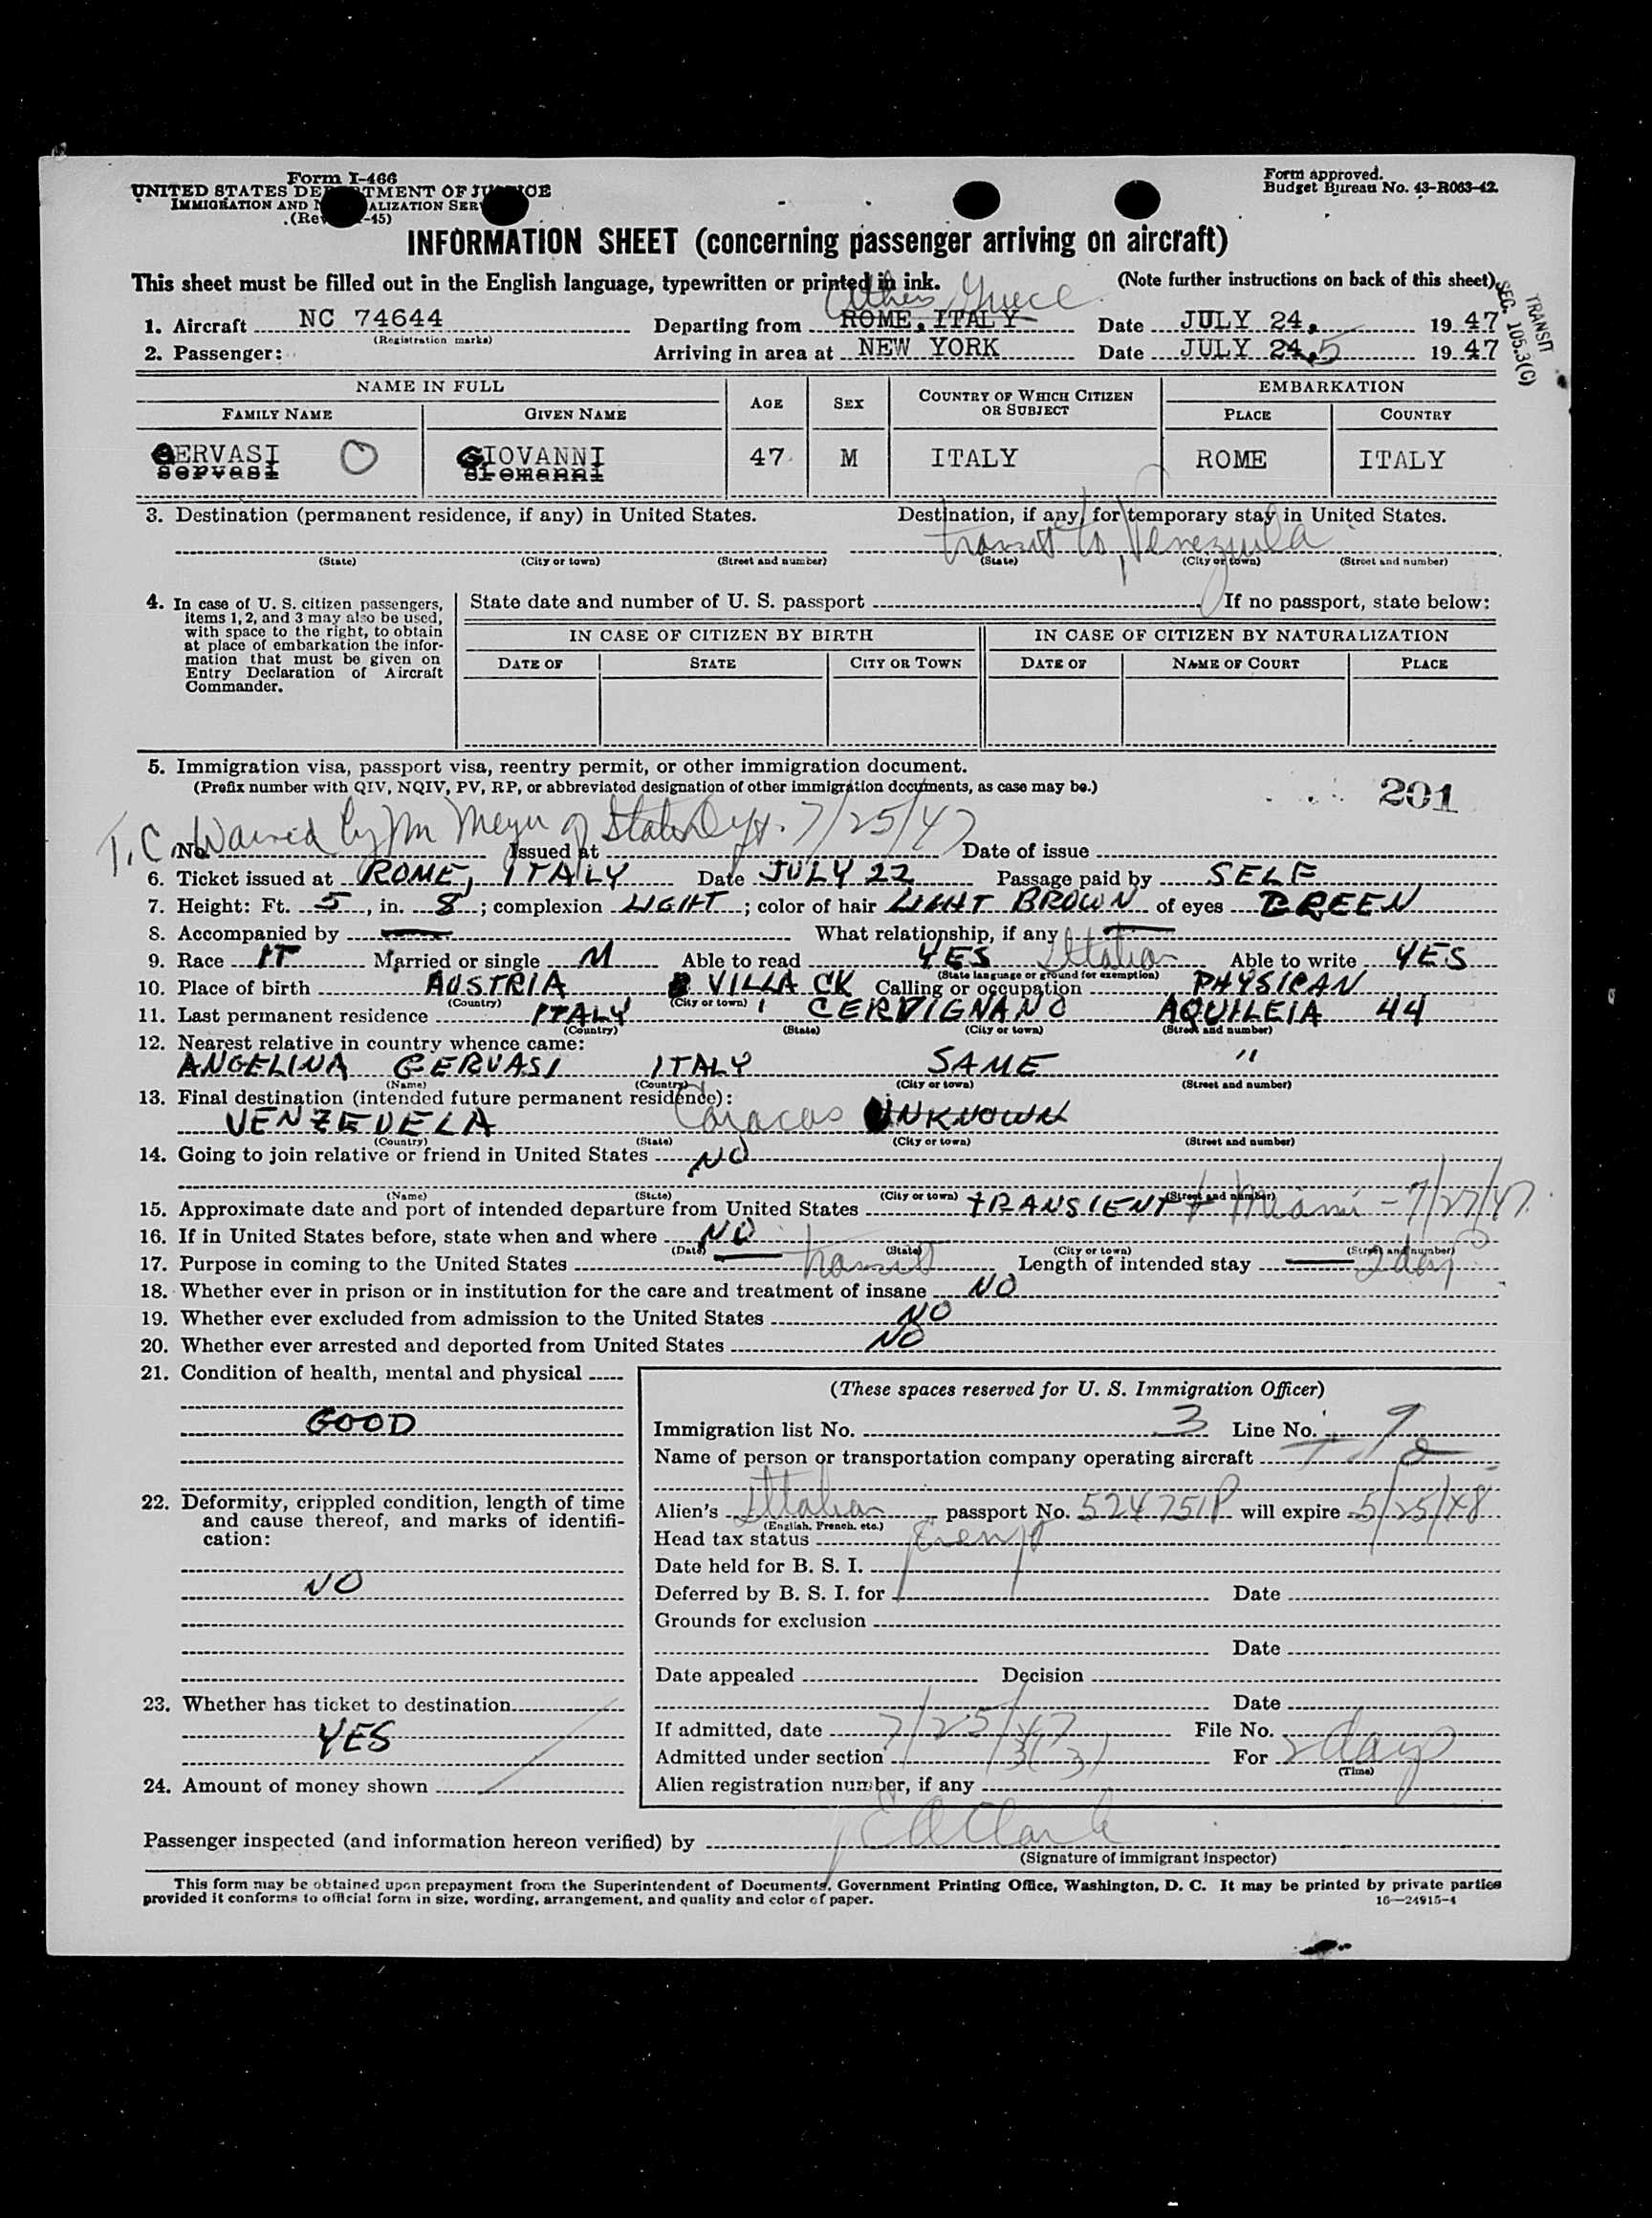 Form I-466
UNITED STATES DEPARTMENT OF JUSTICE
IMMIGRATION AND NATURALIZATION SERVICE
(Rev. -45)
Form approved.
Budget Bureau No. 43-R063-42.
INFORMATION SHEET (concerning passenger arriving on aircraft)
This sheet must be filled out in the English language, typewritten or printed in ink. (Note further instructions on back of this sheet)
TRANSIT
SEC. 105.3(C)
Athens, Greece
1. Aircraft NC 74644 Departing from ROME, ITALY Date JULY 24, 1947
(Registration marks)
2. Passenger: Arriving in area at NEW YORK Date JULY 24,5 1947
NAME IN FULL AGE SEX COUNTRY OF WHICH CITIZEN OR SUBJECT EMBARKATION
FAMILY NAME GIVEN NAME PLACE COUNTRY
GERVASI O GIOVANNI 47 M ITALY ROME ITALY
3. Destination (permanent residence, if any) in United States. Destination, if any, for temporary stay in United States.
transit to Venezuela
(State) (City or town) (Street and number) (State) (City or town) (Street and number)
4. In case of U. S. citizen passengers, items 1, 2, and 3 may also be used, with space to the right, to obtain at place of embarkation the information that must be given on Entry Declaration of Aircraft Commander.
State date and number of U. S. passport If no passport, state below:
IN CASE OF CITIZEN BY BIRTH IN CASE OF CITIZEN BY NATURALIZATION
DATE OF STATE CITY OR TOWN DATE OF NAME OF COURT PLACE
5. Immigration visa, passport visa, reentry permit, or other immigration document.
(Prefix number with QIV, NQIV, PV, RP, or abbreviated designation of other immigration documents, as case may be.)
201
T.C. Waived by Mr Meyer of State Dept. 7/25/47
No. Issued at Date of issue
6. Ticket issued at ROME, ITALY Date JULY 22 Passage paid by SELF
7. Height: Ft. 5, in. 8; complexion LIGHT; color of hair LIGHT BROWN of eyes GREEN
8. Accompanied by What relationship, if any
9. Race IT Married or single M Able to read YES Italian Able to write YES
(State language or ground for exemption)
10. Place of birth AUSTRIA VILLACK Calling or occupation PHYSICAN
(Country) (City or town)
11. Last permanent residence ITALY CERVIGNANO AQUILEIA 44
(Country) (State) (City or town) (Street and number)
12. Nearest relative in country whence came:
ANGELINA GERVASI ITALY SAME "
(Name) (Country) (City or town) (Street and number)
13. Final destination (intended future permanent residence):
VENZEUELA Caracas UNKNOWN
(Country) (State) (City or town) (Street and number)
14. Going to join relative or friend in United States NO
(Name) (State) (City or town) (Street and number)
15. Approximate date and port of intended departure from United States TRANSIENT Miami - 7/27/47.
16. If in United States before, state when and where NO
(Date) (State) (City or town) (Street and number)
17. Purpose in coming to the United States transit Length of intended stay 2 days
18. Whether ever in prison or in institution for the care and treatment of insane NO
19. Whether ever excluded from admission to the United States NO
20. Whether ever arrested and deported from United States NO
21. Condition of health, mental and physical
GOOD
22. Deformity, crippled condition, length of time and cause thereof, and marks of identification:
NO
23. Whether has ticket to destination
YES
24. Amount of money shown
(These spaces reserved for U. S. Immigration Officer)
Immigration list No. 3 Line No. 9
Name of person or transportation company operating aircraft
Alien's Italian passport No. 524751P will expire 5/25/48
(English, French, etc.)
Head tax status Exempt
Date held for B. S. I.
Deferred by B. S. I. for Date
Grounds for exclusion
Date
Date appealed Decision
Date
If admitted, date 7/25/47 File No.
Admitted under section 3(3) For 2 days
(Time)
Alien registration number, if any
Passenger inspected (and information hereon verified) by E A Clark
(Signature of immigrant inspector)
This form may be obtained upon prepayment from the Superintendent of Documents, Government Printing Office, Washington, D. C. It may be printed by private parties
provided it conforms to official form in size, wording, arrangement, and quality and color of paper. 16—24915-4